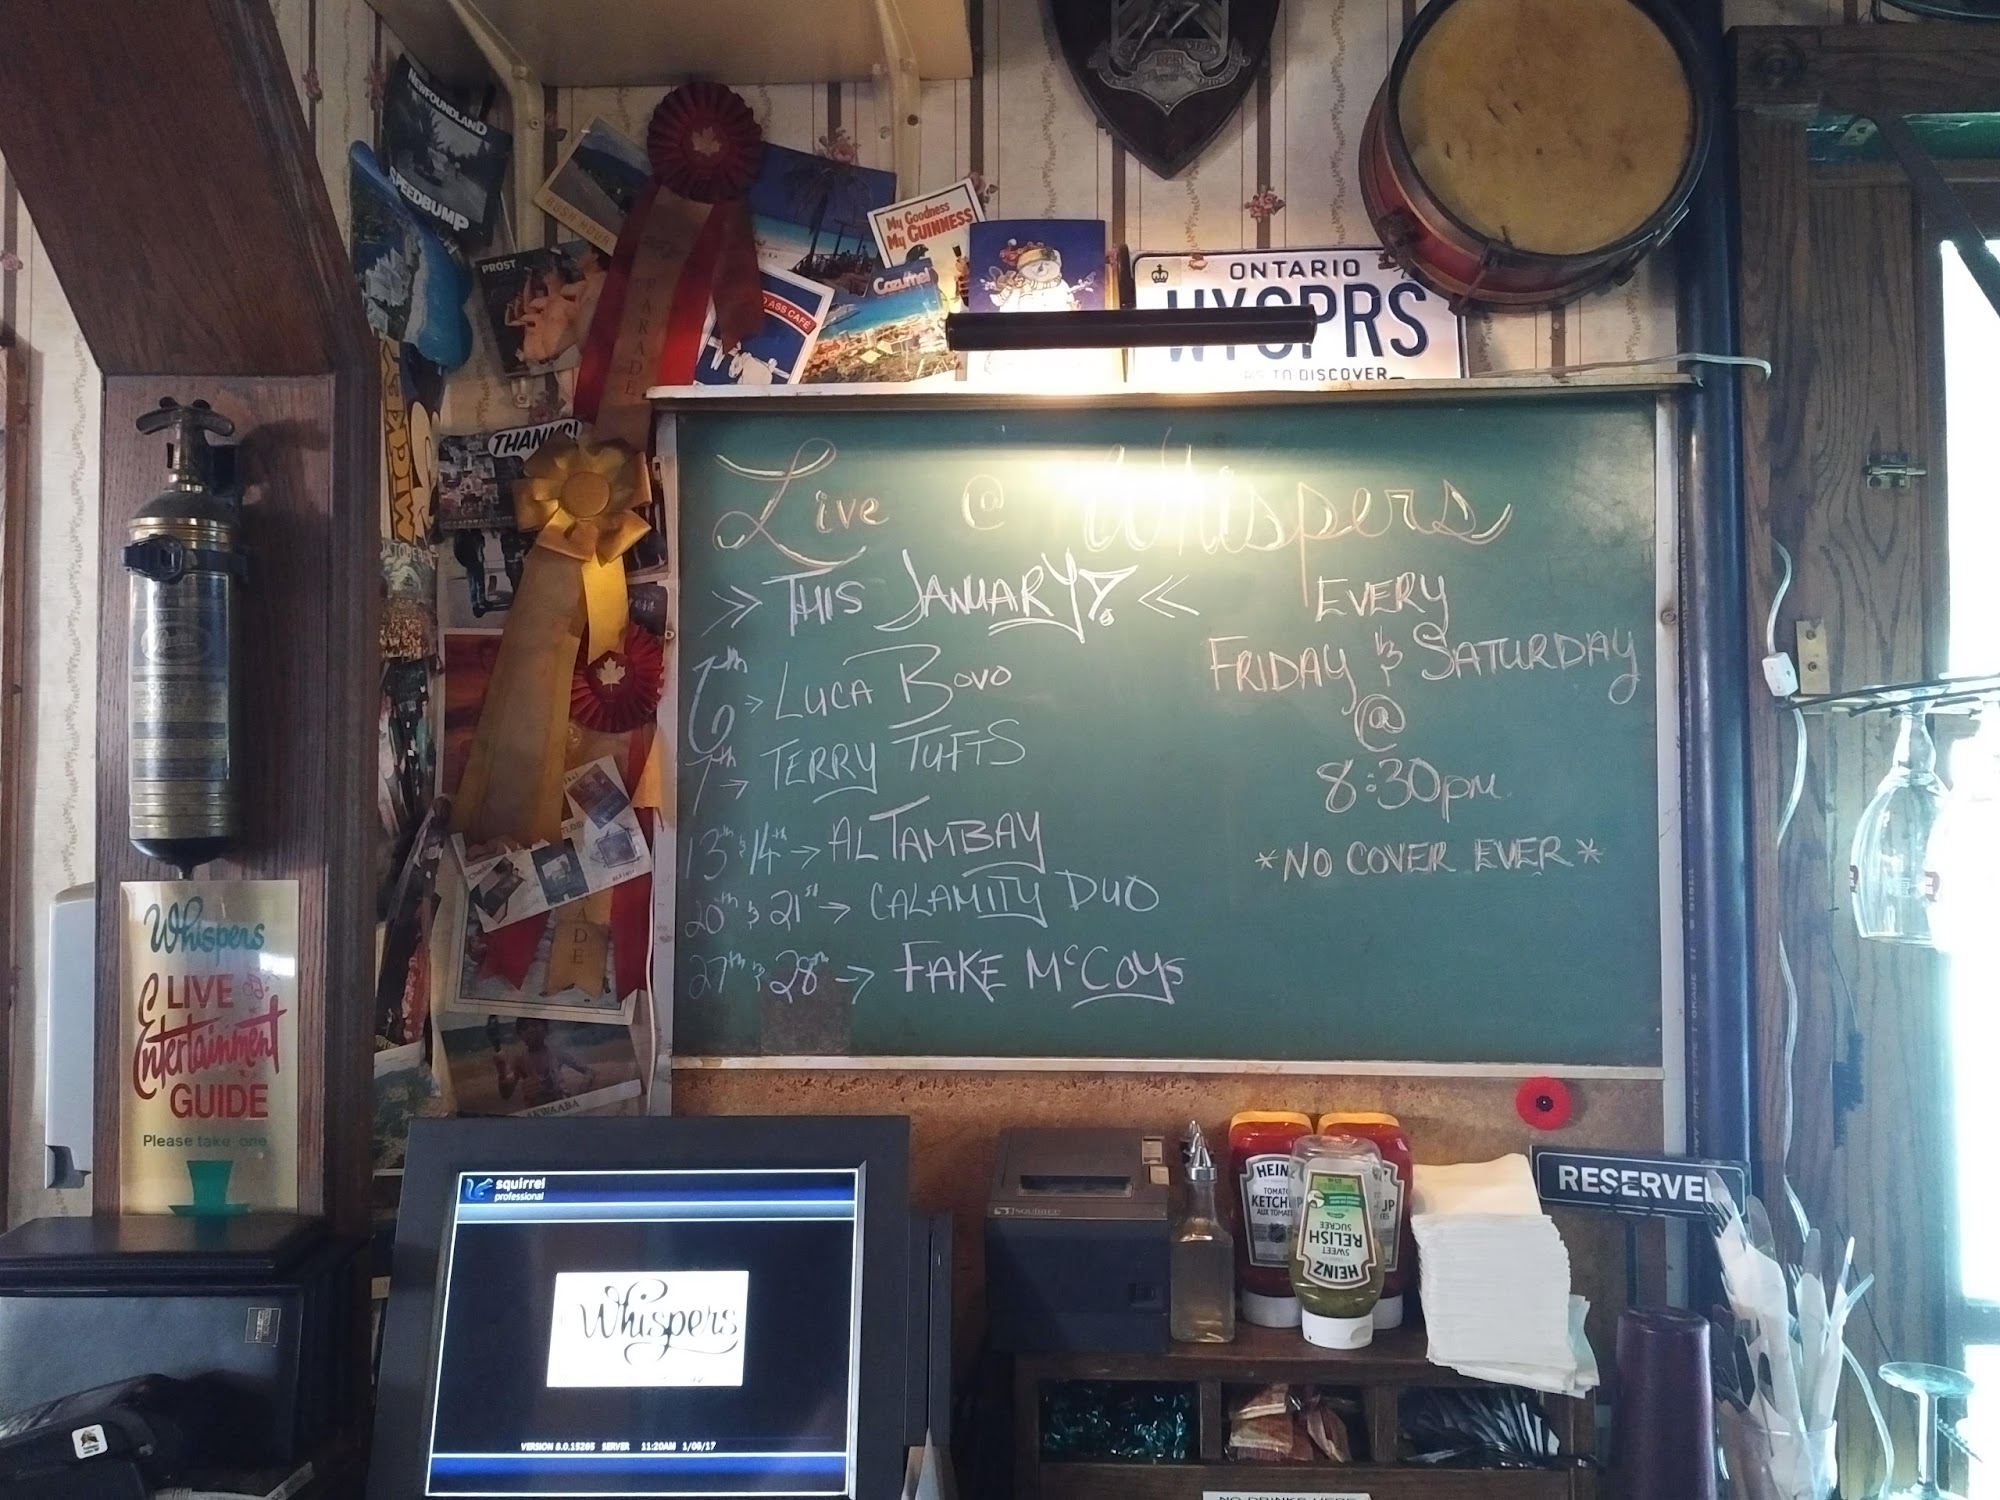 NEWFOUNDLAND
SPEEDBUMP
RUSH HOUR
PROST
My Goodness
My GUINNESS
Cozumel
ASS CAFÉ
ONTARIO
WYSPRS
TO DISCOVER
THANKS!
PARADE
Live @ Whispers
>> THIS JANUARY! <<
6th → LUCA BOVO
7th → TERRY TUFTS
13th & 14th → AL TAMBAY
20th & 21st → CALAMITY DUO
27th & 28th → FAKE McCOYs
EVERY
FRIDAY & SATURDAY
@
8:30pm
*NO COVER EVER*
Whispers
LIVE
Entertainment
GUIDE
Please take one
AKWAABA
squirrel
professional
Whispers
VERSION 8.0.15265 SERVER 11:20AM 1/06/17
SQUIRREL
HEINZ
TOMATO
KETCHUP
AUX TOMATES
HEINZ
SWEET
RELISH
SUCRÉE
RESERVED
NO DRINKS HERE